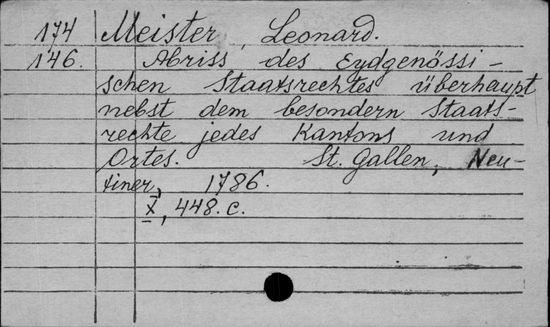 174 Meister, Leonard.
146. Abriss des Eydgenössi-
schen Staatsrechtes überhaupt
nebst dem besondern Staats-
rechte jedes Kantons und
Ortes. St. Gallen, Neu-
tiner, 1786.
X, 448. c.